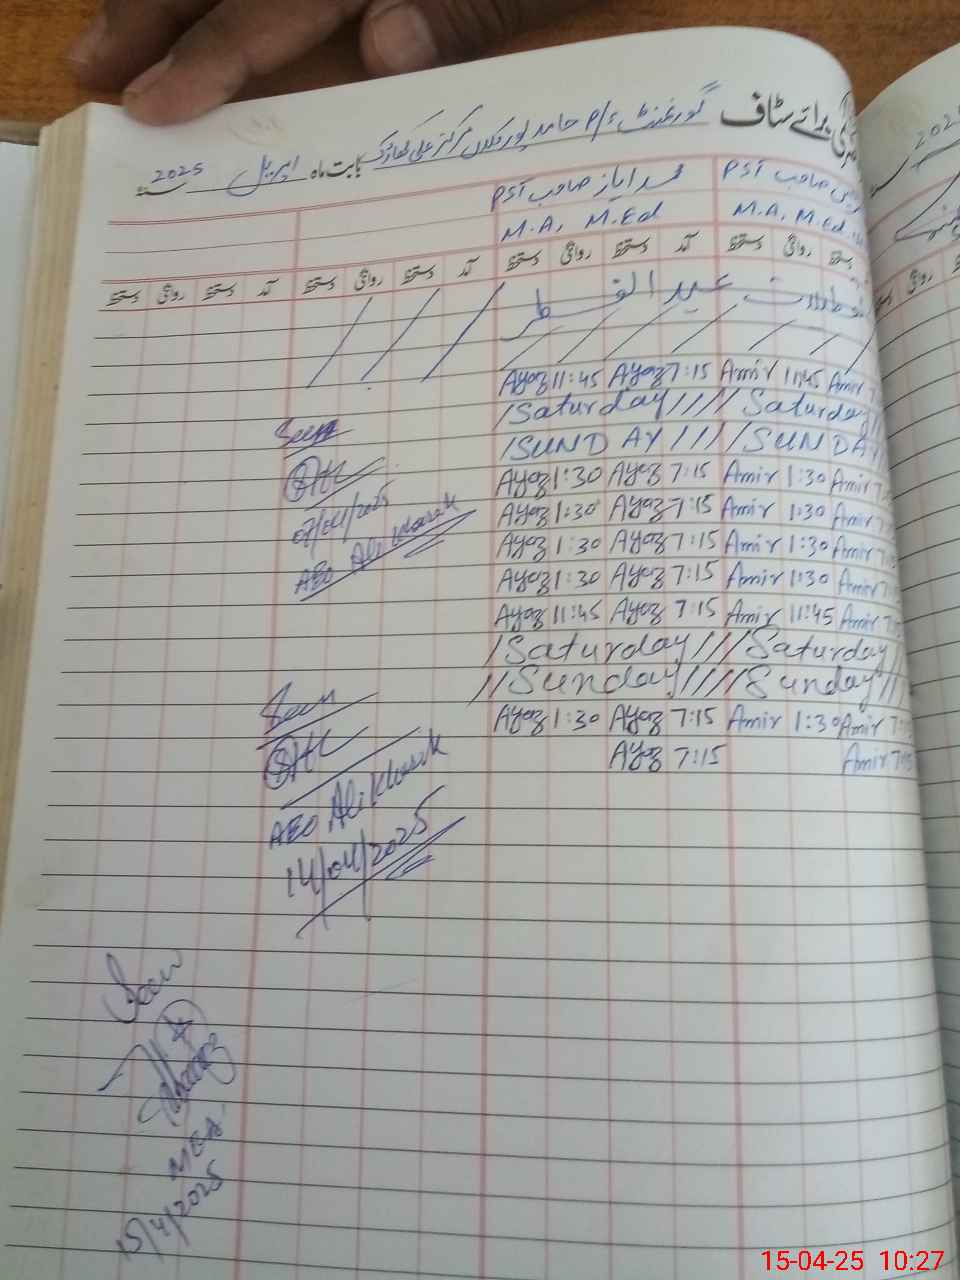 برائے سٹاف گورنمنٹ P/S حامد پور کلاں مرکز علی کھاڑک بابت ماہ اپریل 2025
صاحب PST محمد ایاز صاحب PST
M.A, M.Ed M.A, M.Ed
دستخط روانگی دستخط آمد دستخط روانگی دستخط آمد دستخط روانگی دستخط آمد دستخط روانگی دستخط
عید الفطر
Amir 11:45 Amir Ayaz 7:15 Ayaz 11:45
Saturday Saturday
SUNDAY SUNDAY
Amir 7:15 Amir 1:30 Ayaz 7:15 Ayaz 1:30
Amir 7:15 Amir 1:30 Ayaz 7:15 Ayaz 1:30
Amir 7:15 Amir 1:30 Ayaz 7:15 Ayaz 1:30
Amir 7:15 Amir 1:30 Ayaz 7:15 Ayaz 1:30
Amir 7:15 Amir 11:45 Ayaz 7:15 Ayaz 11:45
Saturday Saturday
Sunday Sunday
Amir 7:15 Amir 1:30 Ayaz 7:15 Ayaz 1:30
Amir 7:15 Ayaz 7:15
Seen
07/04/2025
AEO Ali Kharak
Seen
AEO Ali Kharak
14/04/2025
Seen
MEA
15/4/2025
15-04-25 10:27